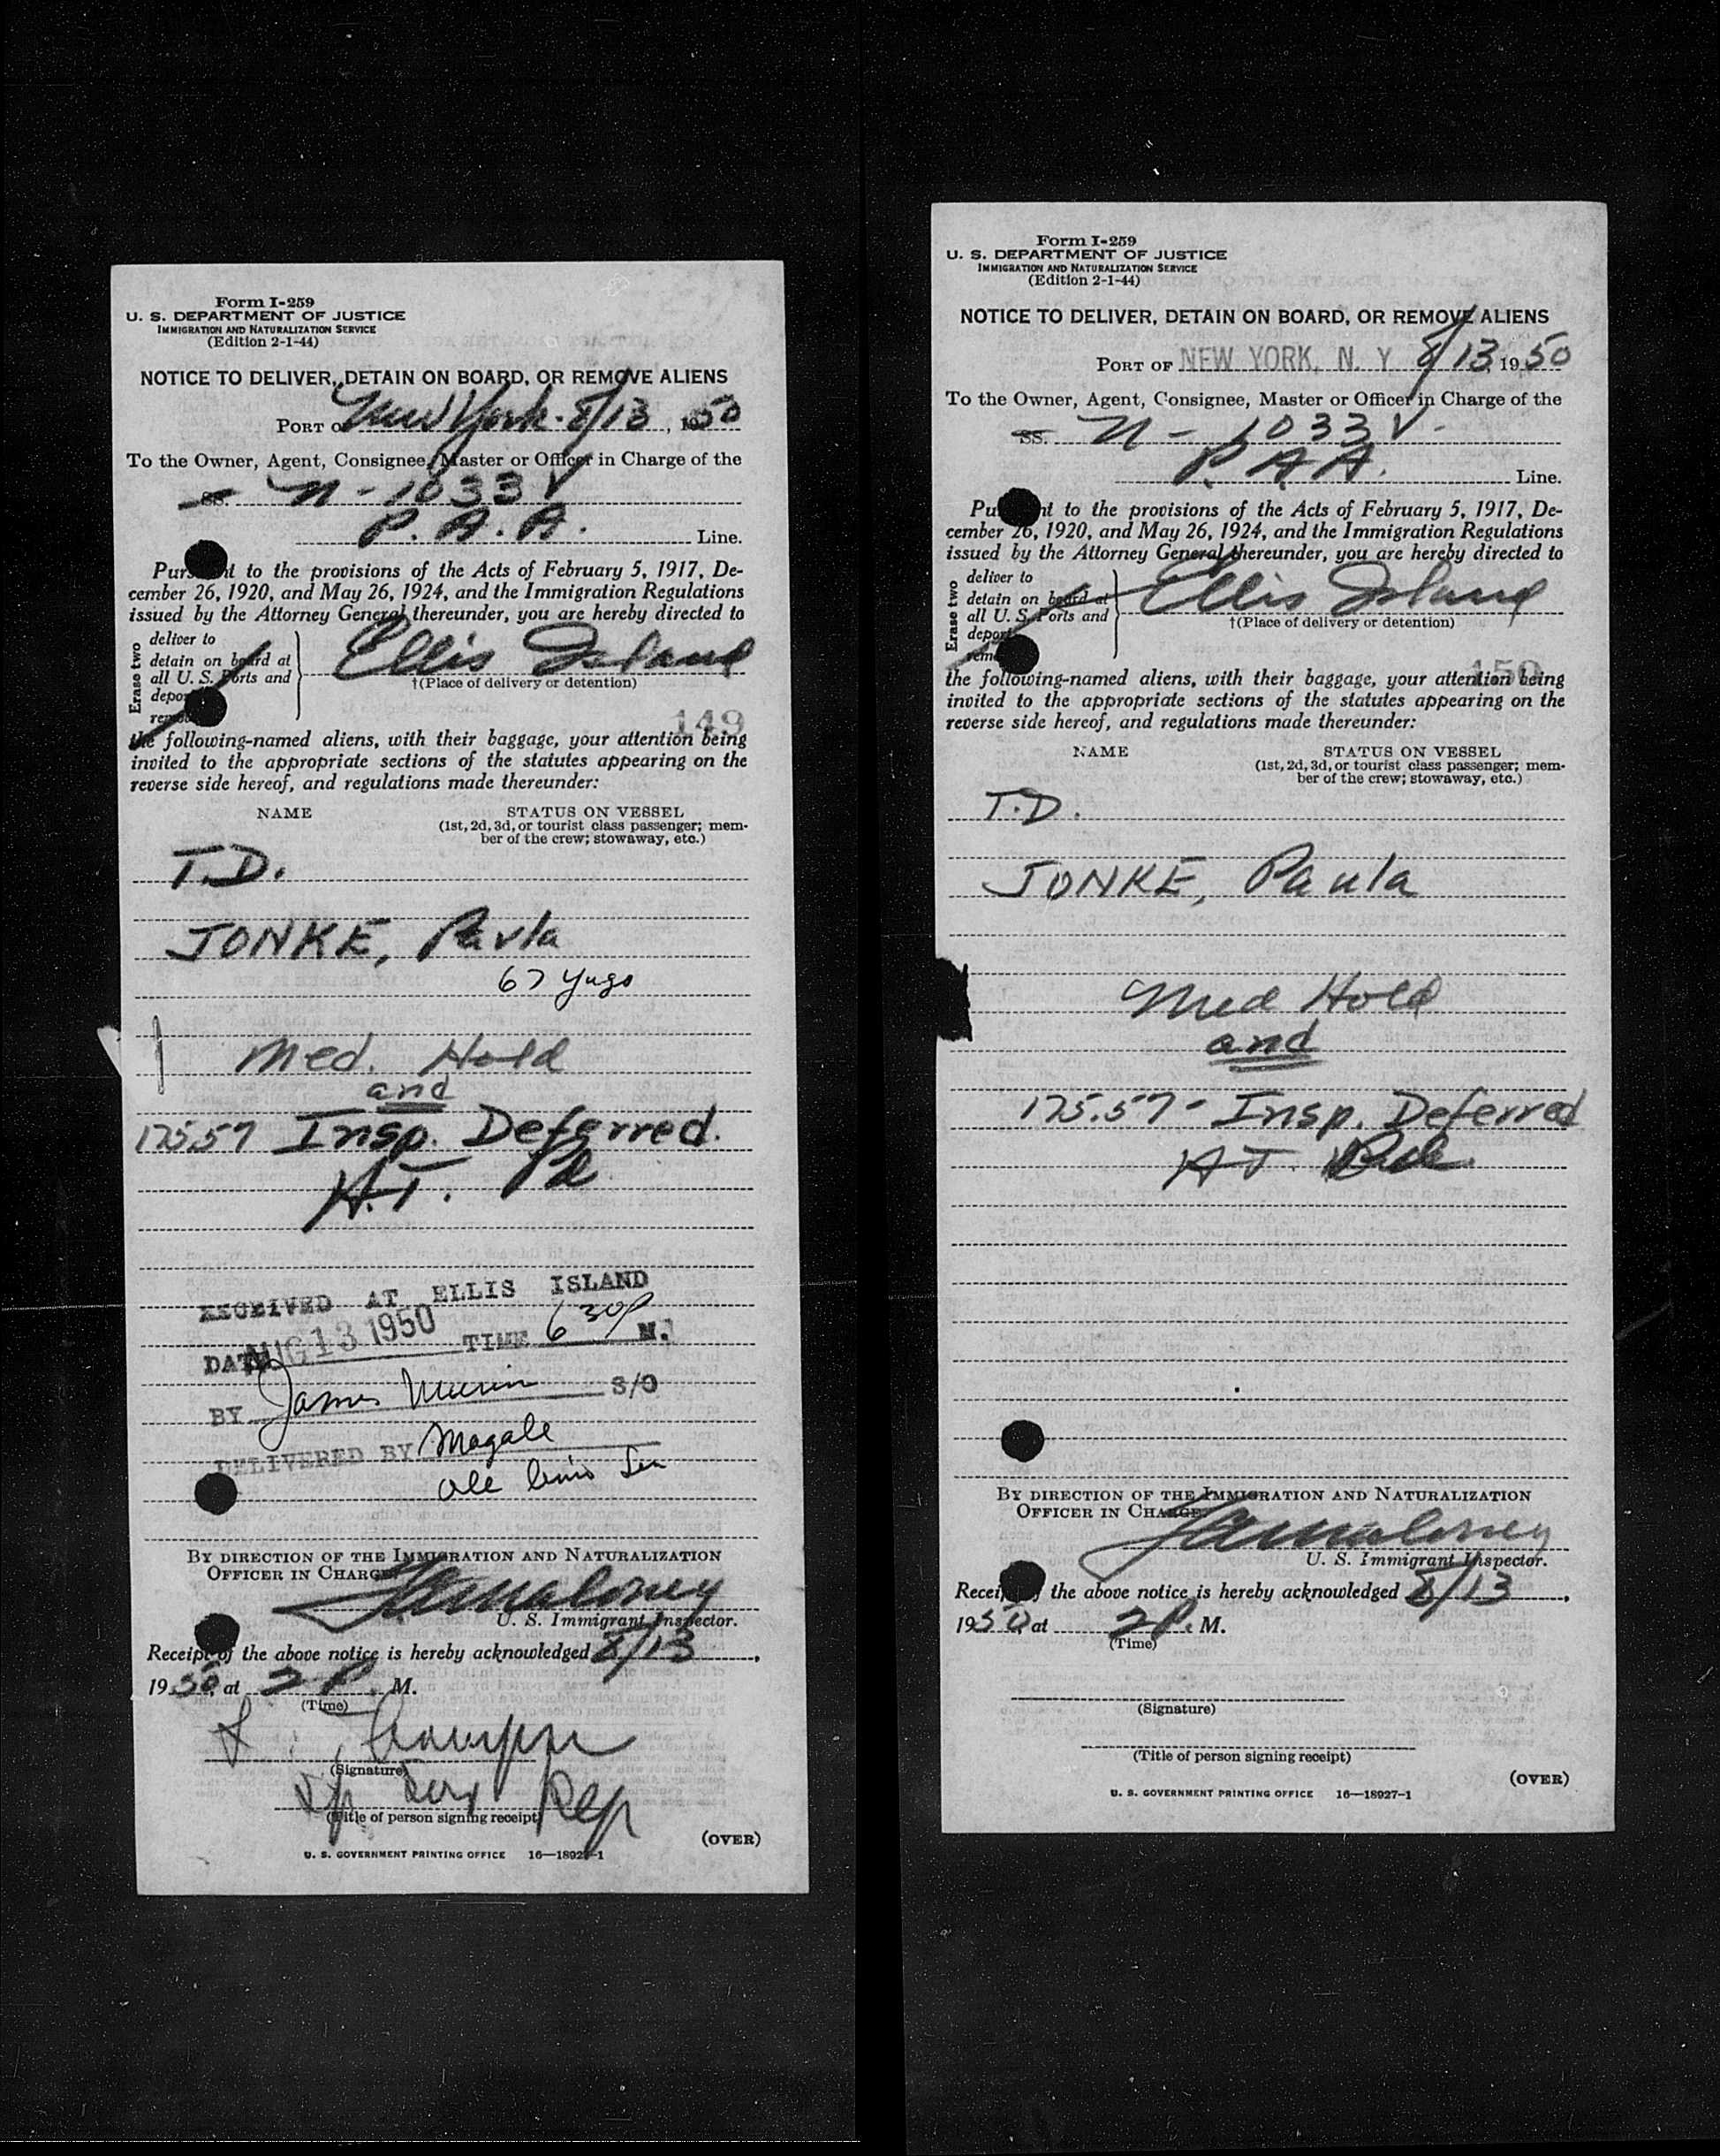 Form I-259
U. S. DEPARTMENT OF JUSTICE
IMMIGRATION AND NATURALIZATION SERVICE
(Edition 2-1-44)
NOTICE TO DELIVER, DETAIN ON BOARD, OR REMOVE ALIENS
PORT OF New York. 8/13, 1950
To the Owner, Agent, Consignee, Master or Officer in Charge of the
SS. N-1033V
P. A. A. Line.
Pursuant to the provisions of the Acts of February 5, 1917, De-
cember 26, 1920, and May 26, 1924, and the Immigration Regulations
issued by the Attorney General thereunder, you are hereby directed to
Erase two
deliver to
detain on board at
all U. S. Ports and
deport
remove
Ellis Island
†(Place of delivery or detention)
149
the following-named aliens, with their baggage, your attention being
invited to the appropriate sections of the statutes appearing on the
reverse side hereof, and regulations made thereunder:
NAME STATUS ON VESSEL
(1st, 2d, 3d, or tourist class passenger; mem-
ber of the crew; stowaway, etc.)
T.D.
JONKE, Paula
67 Yugo
Med. Hold
and
175.57 Insp. Deferred.
H.T.
RECEIVED AT ELLIS ISLAND
DATE AUG 13 1950 TIME 6 30P M.
BY James S/O
DELIVERED BY Magale
BY DIRECTION OF THE IMMIGRATION AND NATURALIZATION
OFFICER IN CHARGE
Maloney
U. S. Immigrant Inspector.
Receipt of the above notice is hereby acknowledged 8/13,
1950, at 2 P. M.
(Time)
(Signature)
Rep
(Title of person signing receipt)
(OVER)
U. S. GOVERNMENT PRINTING OFFICE 16—18927-1
Form I-259
U. S. DEPARTMENT OF JUSTICE
IMMIGRATION AND NATURALIZATION SERVICE
(Edition 2-1-44)
NOTICE TO DELIVER, DETAIN ON BOARD, OR REMOVE ALIENS
PORT OF NEW YORK, N. Y 8/13, 1950
To the Owner, Agent, Consignee, Master or Officer in Charge of the
SS. N-1033V.
P. A A. Line.
Pursuant to the provisions of the Acts of February 5, 1917, De-
cember 26, 1920, and May 26, 1924, and the Immigration Regulations
issued by the Attorney General thereunder, you are hereby directed to
Erase two
deliver to
detain on board at
all U. S. Ports and
deport
remove
Ellis Island
†(Place of delivery or detention)
150
the following-named aliens, with their baggage, your attention being
invited to the appropriate sections of the statutes appearing on the
reverse side hereof, and regulations made thereunder:
NAME STATUS ON VESSEL
(1st, 2d, 3d, or tourist class passenger; mem-
ber of the crew; stowaway, etc.)
T.D.
JONKE, Paula
Med Hold
and
175.57- Insp. Deferred
H T.
BY DIRECTION OF THE IMMIGRATION AND NATURALIZATION
OFFICER IN CHARGE
Maloney
U. S. Immigrant Inspector.
Receipt of the above notice is hereby acknowledged 8/13,
1950 at 2 P. M.
(Time)
(Signature)
(Title of person signing receipt)
(OVER)
U. S. GOVERNMENT PRINTING OFFICE 16—18927-1